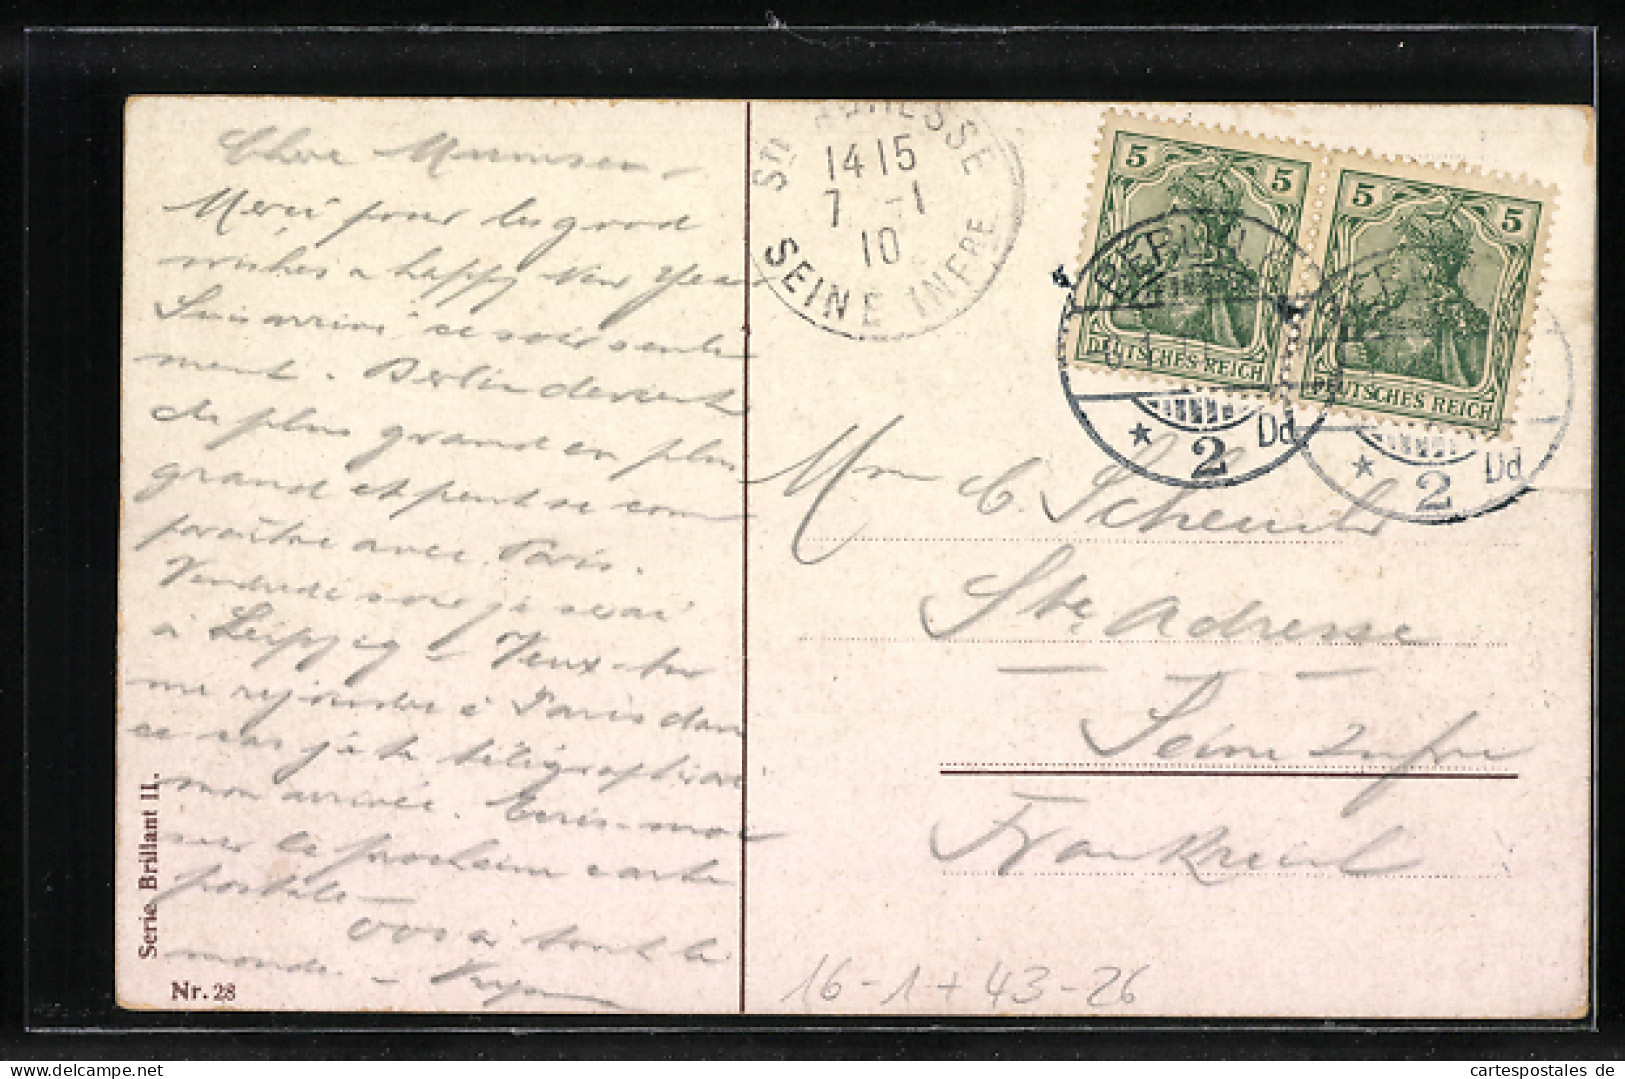 Chère
Merci pour les good
wishes a happy New Year
Suis arrivé ce soir seule
ment. Berlin devient
de plus grand en plus
grand et peut se com
paraître avec Paris.
Vendredi soir je serai
à Leipzig – Veux-tu
me rejoindre à Paris dans
ce cas je te télégraphierai
mon arrivée. Ecris-moi
sur la prochaine carte
postale
à tout le
monde. –
Serie Brillant II.
Nr. 28
STE ADRESSE
14 15
7 -1
10
SEINE INFRE
5 5
DEUTSCHES REICH
5 5
DEUTSCHES REICH
BERLIN
* 2 Dd
* 2 Dd
Mme C.
Ste Adresse
Seine Infre
Frankreich
16-1+43-26
cartespostales de